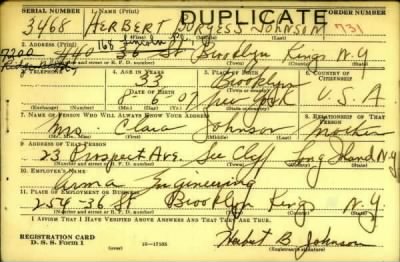 SERIAL NUMBER 1. NAME (Print) ORDER NUMBER
DUPLICATE
3468 HERBERT BURGESS JOHNSON 731
2. ADDRESS (Print)
165 Lincoln
7220 440 36 St Brooklyn Kings N.Y.
(Number and street or R. F. D. number) (Town) (County) (State)
3. TELEPHONE 4. AGE IN YEARS 5. PLACE OF BIRTH 6. COUNTRY OF CITIZENSHIP
33 Brooklyn
DATE OF BIRTH
8-6-07 New York U.S.A
(Exchange) (Number) (Mo.) (Day) (Yr.) (State or country)
7. NAME OF PERSON WHO WILL ALWAYS KNOW YOUR ADDRESS 8. RELATIONSHIP OF THAT PERSON
Mrs. Clara Johnson Mother
(Mr., Mrs., Miss) (First) (Middle) (Last)
9. ADDRESS OF THAT PERSON
23 Prospect Ave. Sea Cliff Long Island N.Y
(Number and street or R. F. D. number) (Town) (County) (State)
10. EMPLOYER'S NAME
Arma Engineering
11. PLACE OF EMPLOYMENT OR BUSINESS
254-36 St Brooklyn Kings N.Y.
(Number and street or R. F. D. number) (Town) (County) (State)
I AFFIRM THAT I HAVE VERIFIED ABOVE ANSWERS AND THAT THEY ARE TRUE.
REGISTRATION CARD
D. S. S. Form 1 16—17105 Herbert B Johnson
(Registrant's signature)